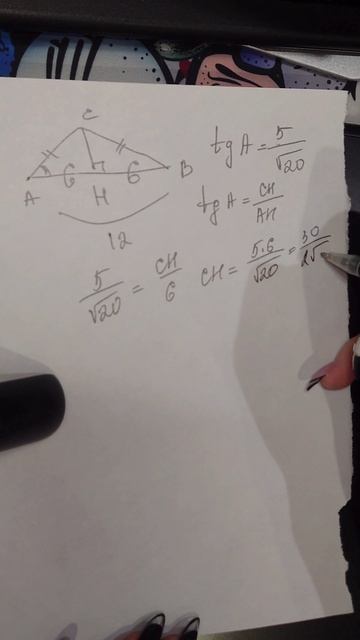 C
A 6 H 6 B
12
tg A = 5/√20
tg A = CH/AH
5/√20 = CH/6 CH = 5·6/√20 = 30/2√